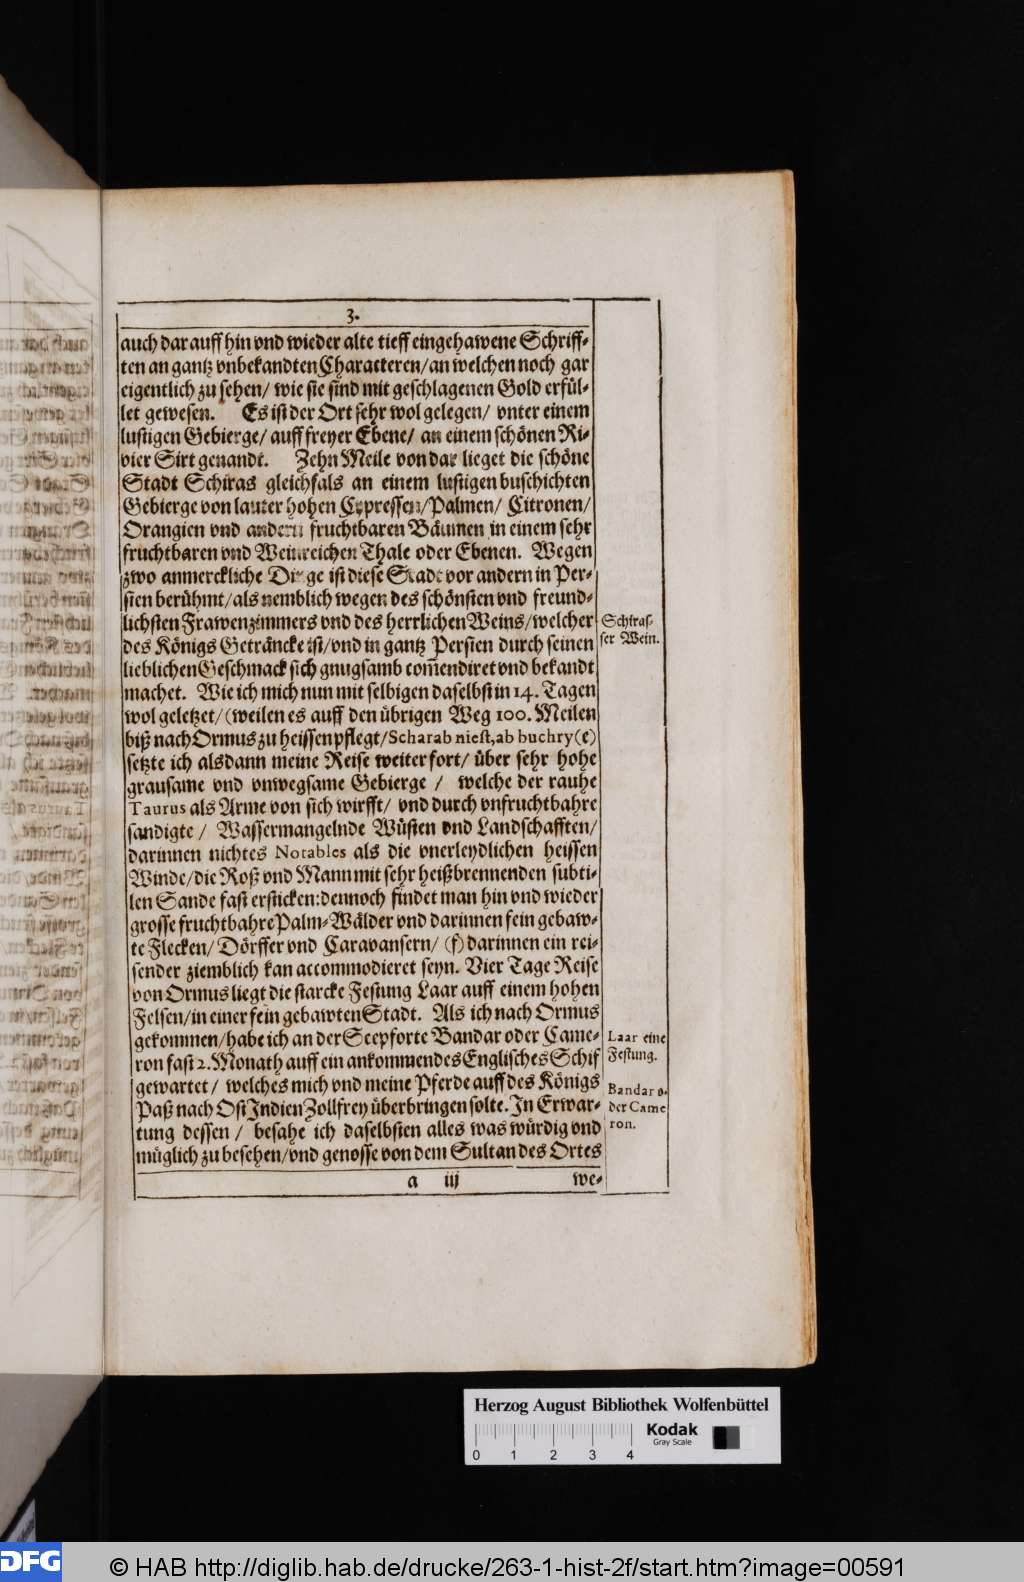 3.
auch darauff hin vnd wieder alte tieff eingehawene Schriff-
ten an gantz vnbekandten Characteren/ an welchen noch gar
eigentlich zu sehen/ wie sie sind mit geschlagenen Gold erfül-
let gewesen. Es ist der Ort sehr wol gelegen/ vnter einem
lustigen Gebierge/ auff freyer Ebene/ an einem schönen Ri-
vier Sirt genandt. Zehn Meile von dar lieget die schöne
Stadt Schiras gleichfals an einem lustigen buschichten
Gebierge von lauter hohen Cypressen/ Palmen/ Citronen/
Orangien vnd andern fruchtbaren Bäumen in einem sehr
fruchtbaren vnd Weinreichen Thale oder Ebenen. Wegen
zwo anmerckliche Dinge ist diese Stadt vor andern in Per-
sien berühmt/ als nemblich wegen des schönsten vnd freund-
lichsten Frawenzimmers vnd des herrlichen Weins/ welcher
des Königs Geträncke ist/ vnd in gantz Persien durch seinen
lieblichen Geschmack sich gnugsamb com̃endiret vnd bekandt
machet. Wie ich mich nun mit selbigen daselbst in 14. Tagen
wol geletzet/ (weilen es auff den übrigen Weg 100. Meilen
biß nach Ormus zu heissen pflegt/ Scharab niest, ab buchry (e)
setzte ich alsdann meine Reise weiter fort/ über sehr hohe
grausame vnd vnwegsame Gebierge / welche der rauhe
Taurus als Arme von sich wirfft/ vnd durch vnfruchtbahre
sandigte / Wassermangelnde Wüsten vnd Landschafften/
darinnen nichtes Notables als die vnerleydlichen heissen
Winde/ die Roß vnd Mann mit sehr heißbrennenden subti-
len Sande fast ersticken: dennoch findet man hin vnd wieder
grosse fruchtbahre Palm-Wälder vnd darinnen fein gebaw-
te Flecken/ Dörffer vnd Caravansern/ (f) darinnen ein rei-
sender ziemblich kan accommodieret seyn. Vier Tage Reise
von Ormus liegt die starcke Festung Laar auff einem hohen
Felsen/ in einer fein gebawten Stadt. Als ich nach Ormus
gekommen/ habe ich an der Seepforte Bandar oder Came-
ron fast 2. Monath auff ein ankommendes Englisches Schif
gewartet / welches mich vnd meine Pferde auff des Königs
Paß nach Ost Indien Zollfrey überbringen solte. In Erwar-
tung dessen / besahe ich daselbsten alles was würdig vnd
müglich zu besehen/ vnd genosse von dem Sultan des Ortes
a iij we-
Schiras-
ser Wein.
Laar eine
Festung.
Bandar o-
der Came
ron.
Herzog August Bibliothek Wolfenbüttel
Kodak
Gray Scale
0 1 2 3 4
DFG
© HAB http://diglib.hab.de/drucke/263-1-hist-2f/start.htm?image=00591